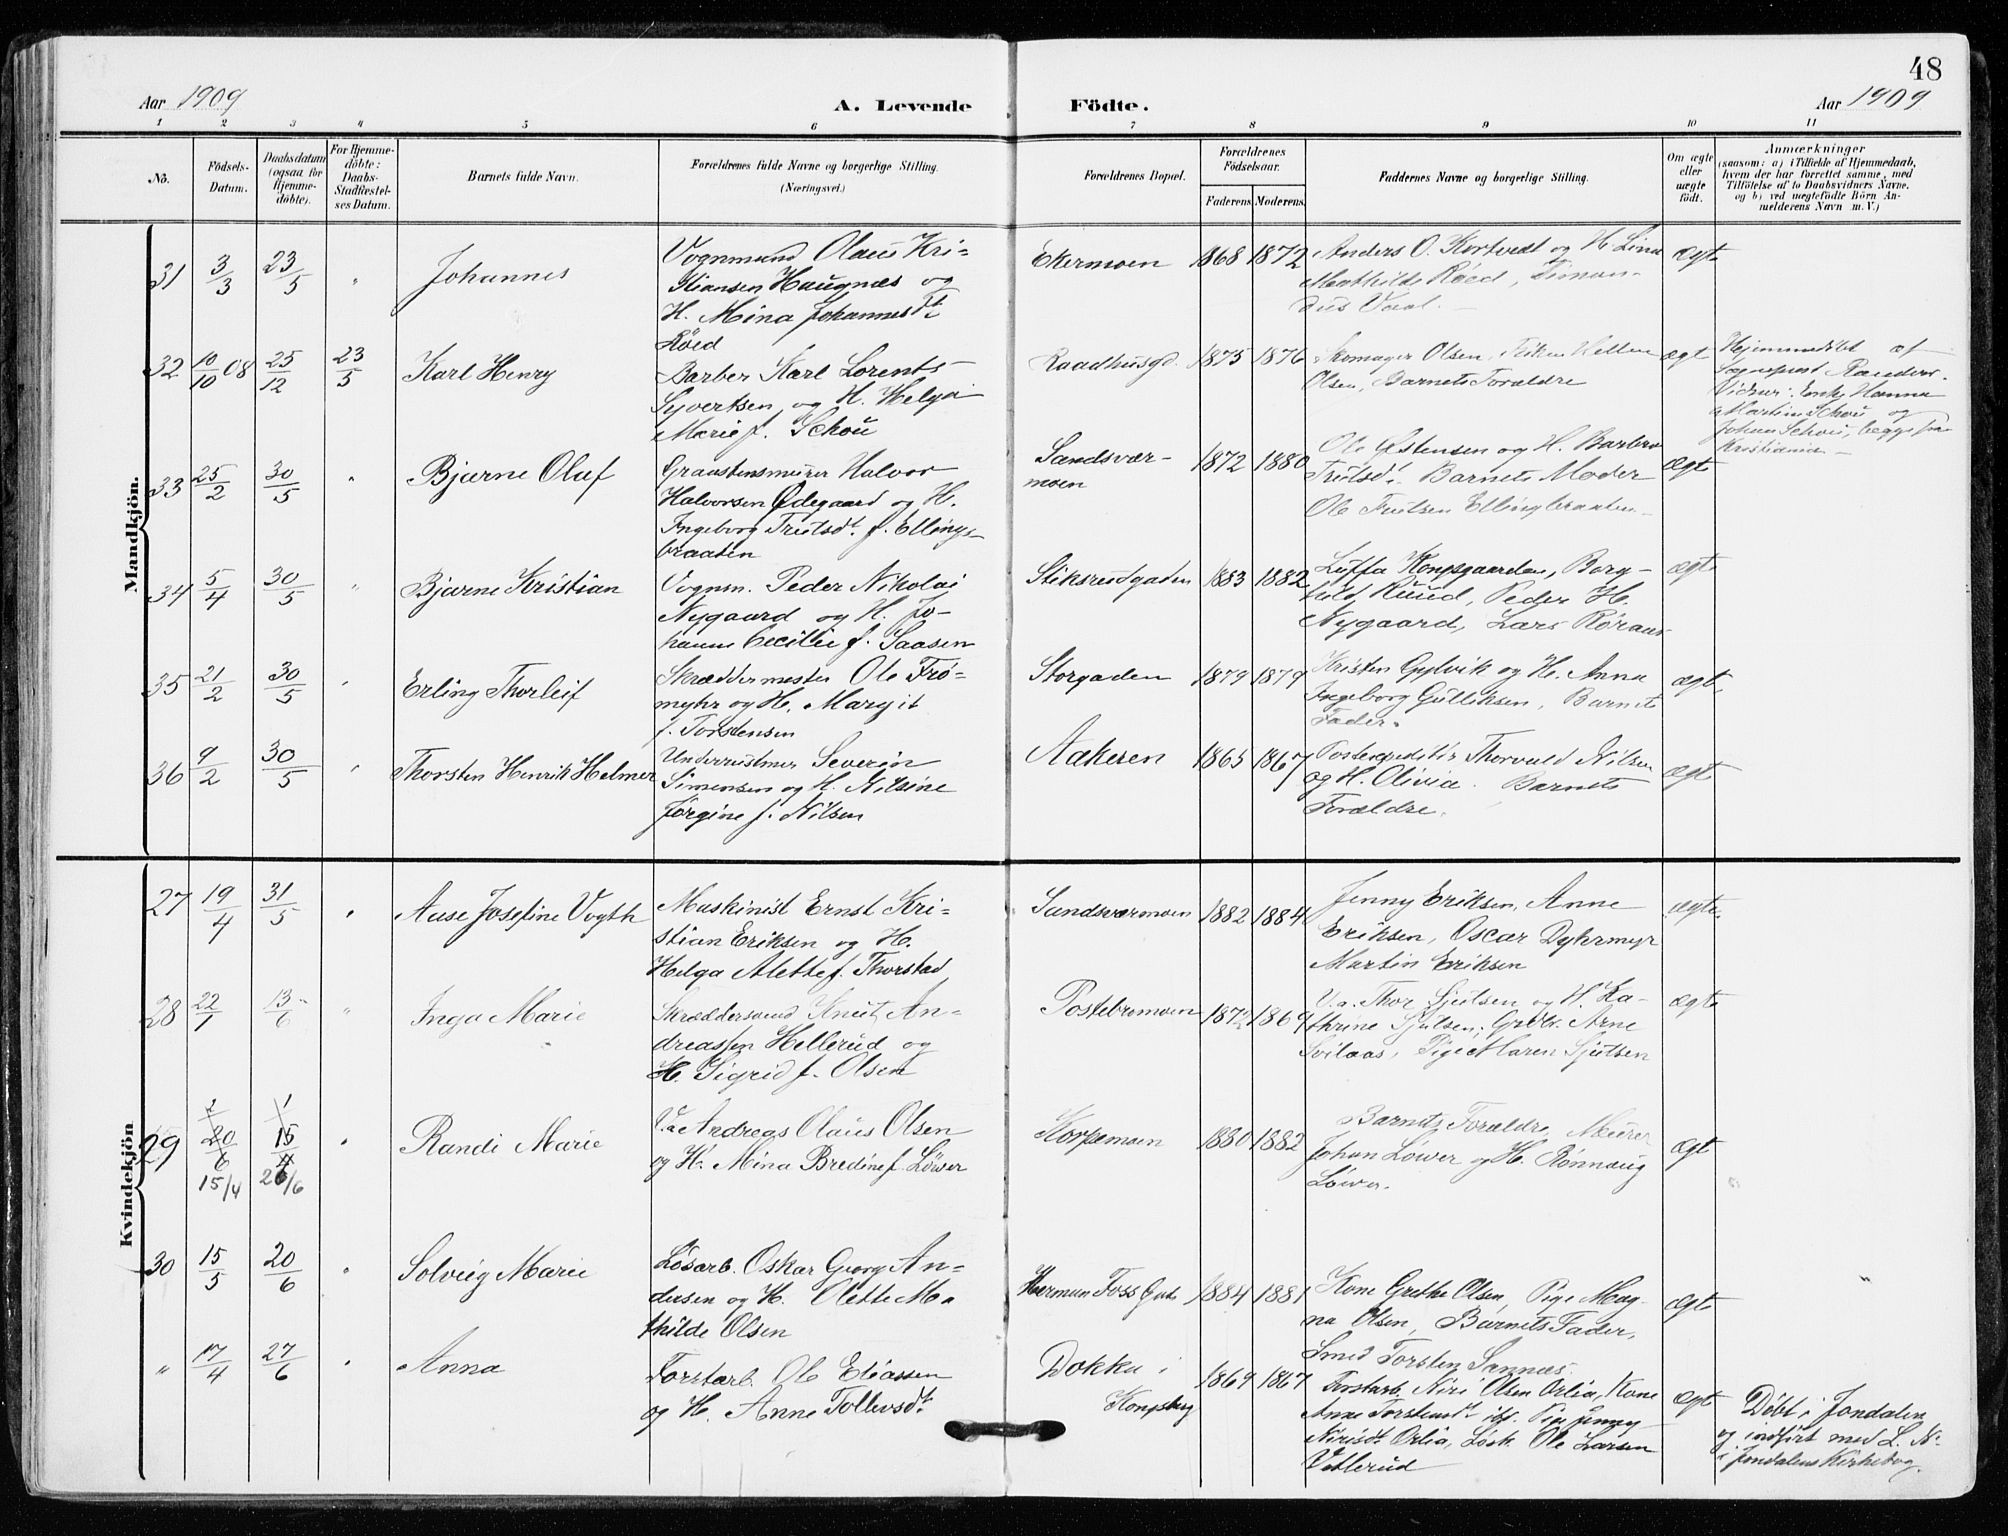 48
Aar 1909
A. Levende
Födte.
Aar 1909
1 2 3 4 5 6 7 8 9 10 11
No.
Födsels-
Datum.
Daabsdatum
(ogsaa for
Hjemme-
döbte).
For Hjemme-
döbte:
Daabs-
Stadfæstel-
ses Datum.
Barnets fulde Navn.
Forældrenes fulde Navne og borgerlige Stilling.
(Næringsvei.)
Forældrenes Bopæl.
Forældrenes
Födselsaar.
Faderens. Moderens.
Faddernes Navne og borgerlige Stilling.
Om ægte
eller
uægte
födt.
Anmærkninger
(saasom: a) i Tilfælde af Hjemmedaab,
hvem der har forrettet samme, med
Tilföielse af to Daabsvidners Navne.
og b) ved uægtefödte Börn An-
melderens Navn m. V.)
Mandkjön.
31 3/3 23/5 " Johannes
Vognmand Olaus Kri-
stiansen Haugnæs og
H. Mina Johannesdt.
Røed
Ekermoen 1868 1872
Anders O. Kortvedt og H. Lina
Mathilde Røed, Simon-
ægte
32 10/10 08 25/12 23/5 Karl Henry
Barber Karl Lorents
Syvertsen og H. Helga
Marie f. Schou
Raadhusgd. 1875 1876
Skomager Olsen, Frøken Hellen
Olsen, Barnets Forældre
ægt
Hjemmedöbt af
Sognepræst
Vidner: Enke Hanna
Martin Schou og
Johan Schou, begge fra
Kristiania
33 25/2 30/5 " Bjarne Oluf
Graastensmurer Halvor
Halvorsen Ødegaard og H.
Ingeborg Trulsdt. f. Ellings-
braaten
Sandsvær-
moen
1872 1880
Ole Østensen og H. Barbro
Trulsdt. Barnets Moder
Ole Trulsen Ellingbraaten
ægte
34 5/4 30/5 " Bjarne Kristian
Vognm. Peder Nikolai
Nygaard og H. Jo-
hanne Cecilie f. Saasen
Stiksrudgaden 1883 1882
Kongsgaarden, Borg-
hild Ruud, Peder H.
Nygaard, Lars
ægte
35 21/2 30/5 " Erling Thorleif
Skræddermester Ole Frø-
myhr og H. Margit
f. Torstensen
Storgaden 1879 1879
Kristen Gulvik og H. Anna
Ingeborg Gulliksen, Barnets
Fader.
ægte
36 9/2 30/5 " Thorsten Henrik Helmer
Underrustmer Severin
Simensen og H. Nilsine
Jørgine f. Nilsen
Aakeren 1865 1867
Postexpeditør Thorvald Nilsen
og H. Olivia. Barnets
Forældre.
ægte
Kvindekjön
27 19/4 31/5 " Aase Josefine Vogth
Maskinist Ernst Kri-
stian Eriksen og H.
Helga Alette f. Thorstad
Sandsværmoen 1882 1884
Jenny Eriksen, Anne
Eriksen, Oscar Dyhrmyr
Martin Eriksen
ægte
28 22/1 13/6 " Inga Marie
Skræddersvend Knut An-
dreassen Hellerud og
H. Sigrid f. Olsen
Postebromoen 1872 1869
V.a. Thor Sjulsen og H. Ka-
thrine Sjulsen, Grbr. Arne
Svilaas, Pige Maren Sjulsen
ægte
29 20/6 15/4 15/4 20/6 " Randi Marie
V.a Andreas Olaus Olsen
og H. Mina Bredine f. Löwer
Korpemoen 1880 1882
Barnets Forældre, Murer
Johan Löwer og H. Rönnaug
Löwer.
ægt
30 15/5 20/6 " Solveig Marie
Løsarb. Oskar Georg An-
dersen og H. Olette Ma
thilde Olsen
Herman Foss Gade 1884 1881
Kone Grethe Olsen Pige Mag-
na Olsen, Barnets Fader,
Smed Torsten Sannæs.
ægte
" 17/4 27/6 " Anna
Forstarb. Ole Eliassen
og H. Anne Tollevsdt.
Dokka i
Kongsberg
1869 1867
Forstarb. Niri Olsen Orlia, Kone
Anne Torstensdt. ibf. Pige Jenny
Nirisdt. Orlia, Løsk. Ole Larsen
Vetlerud
ægt
Döbt i Jondalen
og indfört med L. No
i Jondalens Kirkebog.